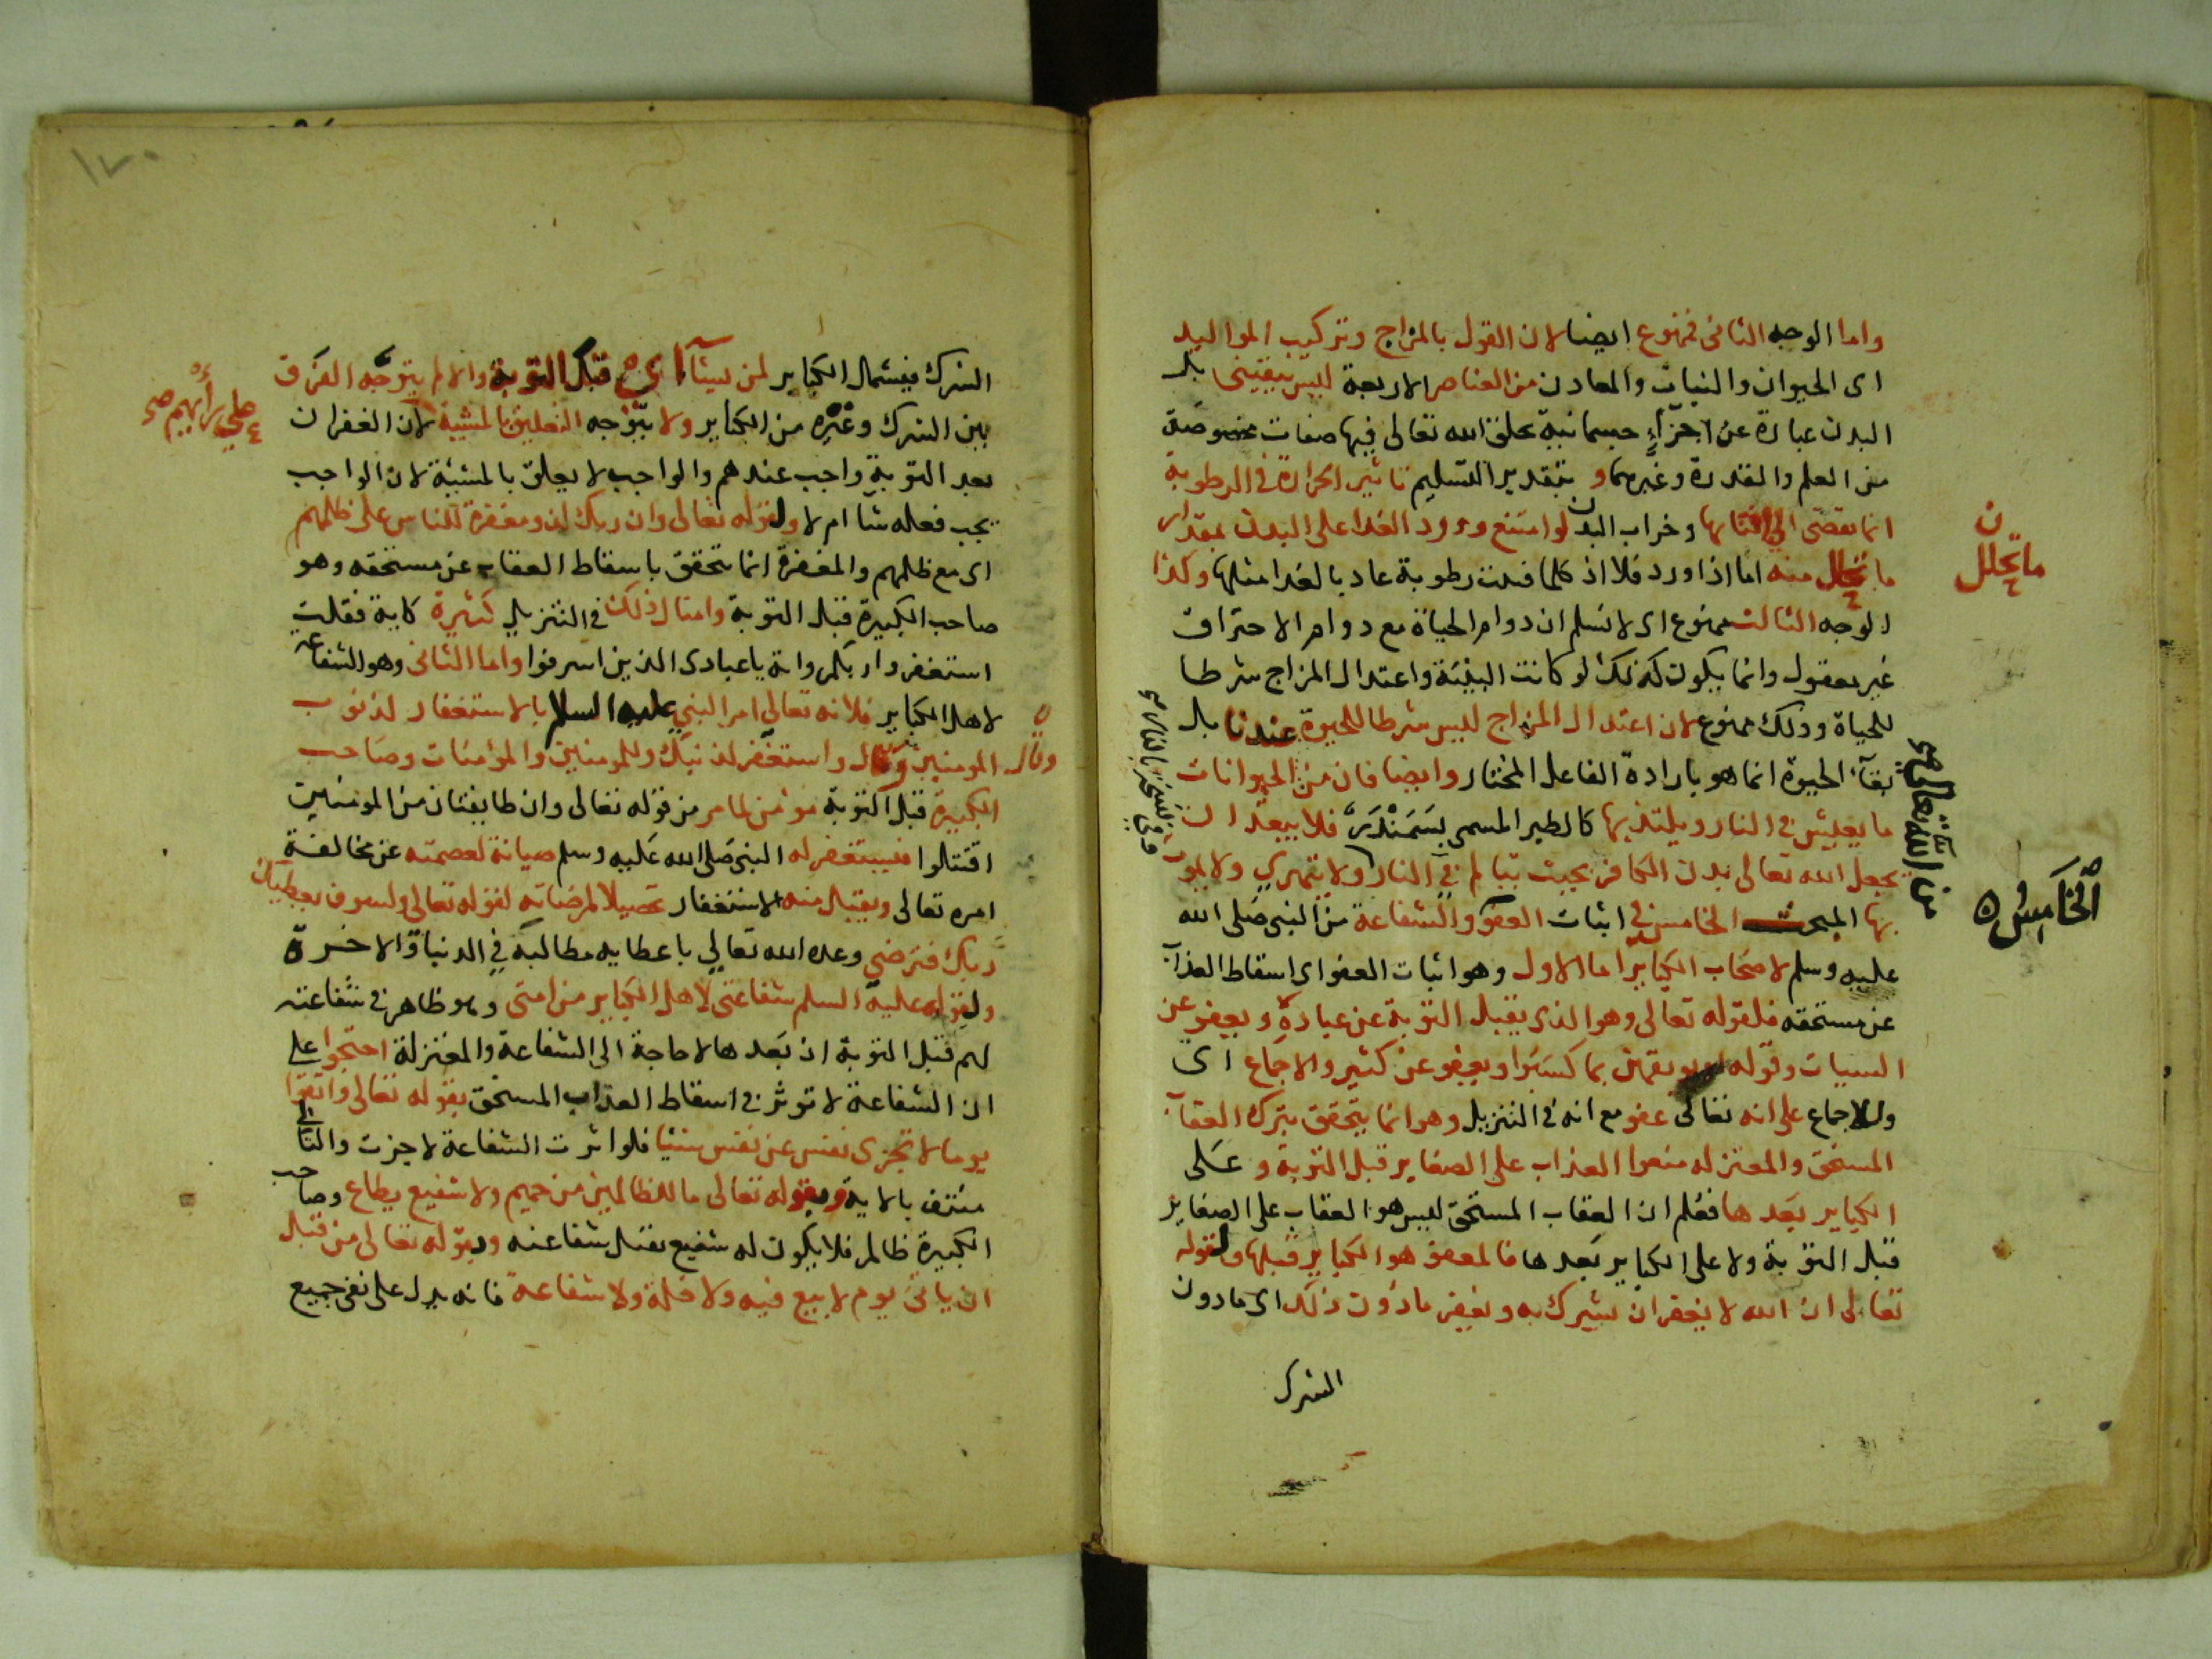 واما الوجه الثانى فممنوع ايضا لان القول بالمزاج وتركيب المواليد
اى الحيوان والنبات والمعادن من العناصر الاربعة ليس بيقينى بل
البدن عبارة عن اجزاءٍ جسمانية يخلق الله تعالى فيها صفات مخصوصة
من العلم والقدرة وغيرهما و بتقدير التسليم تاثير الحرارة فى الرطوبة
انما يفضى الى افنائها وخراب البدن لو امتنع ورود الغذا على البدن بمقدار
ما يتحلل منه اما اذا ورد فلا اذ كلما فنيت رطوبة عاد بالغذا مثلها وكذا
الوجه الثالث ممنوع اى لا نسلم ان دوام الحياة مع دوام الاحتراق
غير معقول وانما يكون كذلك لو كانت البنية واعتدال المزاج شرطا
للحياة وذلك ممنوع لان اعتدال المزاج ليس شرطا للحيوة عندنا بل
بقآء الحيوة انما هو بارادة الفاعل المختار وايضا فان من الحيوانات
ما يعيش فى النار ويلتذ بها كالطير المسمى بسَمَنْدَر فلا يبعد ان
يجعل الله تعالى بدن الكافر بحيث يتالم فى النار ولا يتهرى ولا يموت
بها المبحث الخامس فى اثبات العفو والشفاعة من النبى صلى الله
عليه وسلم لاصحاب الكباير اما الاول وهو اثبات العفو اى اسقاط العذاب
عن مستحقه فلقوله تعالى وهو الذى يقبل التوبة عن عباده و يعفو عن
السيات وقوله او يوبقهن بما كسبوا ويعفو عن كثير والاجماع اى
وللاجماع على انه تعالى عفو مع انه فى التنزيل وهو انما يتحقق بترك العقاب
المستحق والمعتزله منعوا العذاب على الصغاير قبل التوبة و على
الكباير بعدها فعلم ان العقاب المستحق ليس هو العقاب على الصغاير
قبل التوبة ولا على الكباير بعدها فالمعفو هو الكباير قبلها ولقوله
تعالى ان الله لا يغفر ان يشرك به ويغفر ما دون ذلك اى ما دون
الشرك
ن
ما يتحلل
من الله تعالى صح
الخامس
١٧٠
الشرك فيشمل الكباير لمن يشآء اى قبل التوبة والا لم يتوجه الفرق
بين الشرك وغيره من الكباير ولا يتوجه التعليق بالمشية لان الغفران
بعد التوبة واجب عندهم والواجب لا يعلق بالمشيئة لان الواجب
يجب فعله شآ ام لا ولقوله تعالى وان ربك لذو مغفرة للناس على ظلمهم
اى مع ظلمهم والمغفرة انما تتحقق باسقاط العقاب عن مستحقه وهو
صاحب الكبيرة قبل التوبة وامثال ذلك فى التنزيل كثيرة كاية فقلت
استغفروا ربكم واية يا عبادى الذين اسرفوا واما الثانى وهو الشفاعة
لاهل الكباير فلانه تعالى امر النبى عليه السلام بالاستغفار لذنوب
المومنين وقال واستغفر لذنبك وللمومنين والمؤمنات وصاحب
الكبيرة قبل التوبة مؤمن لما مر من قوله تعالى وان طايفتان من المومنين
اقتتلوا فيستغفر له النبى صلى الله عليه وسلم صيانة لعصمته عن مخالفة
امره تعالى ويقبل منه الاستغفار تحصيلا لمرضاته لقوله تعالى ولسوف يعطيك
ربك فترضى وعده الله تعالى باعطايه مطالبه فى الدنيا والاخرة
ولقوله عليه السلم شفاعتى لاهل الكباير من امتى وهو ظاهر فى شفاعته
لهم قبل التوبة اذ بعدها لا حاجة الى الشفاعة والمعتزلة احتجوا على
ان الشفاعة لا توثر فى اسقاط العذاب المستحق بقوله تعالى واتقوا
يوما لا تجزى نفس عن نفس شيئا فلو اثرت الشفاعة لاجزت والتالى
منتف بالاية وبقوله تعالى ما للظالمين من حميم ولا شفيع يطاع وصاحب
الكبيرة ظالم فلا يكون له شفيع تقبل شفاعته وبقوله تعالى من قبل
ان ياتى يوم لا بيع فيه ولا خلة ولا شفاعة فانه يدل على نفى جميع
وقال